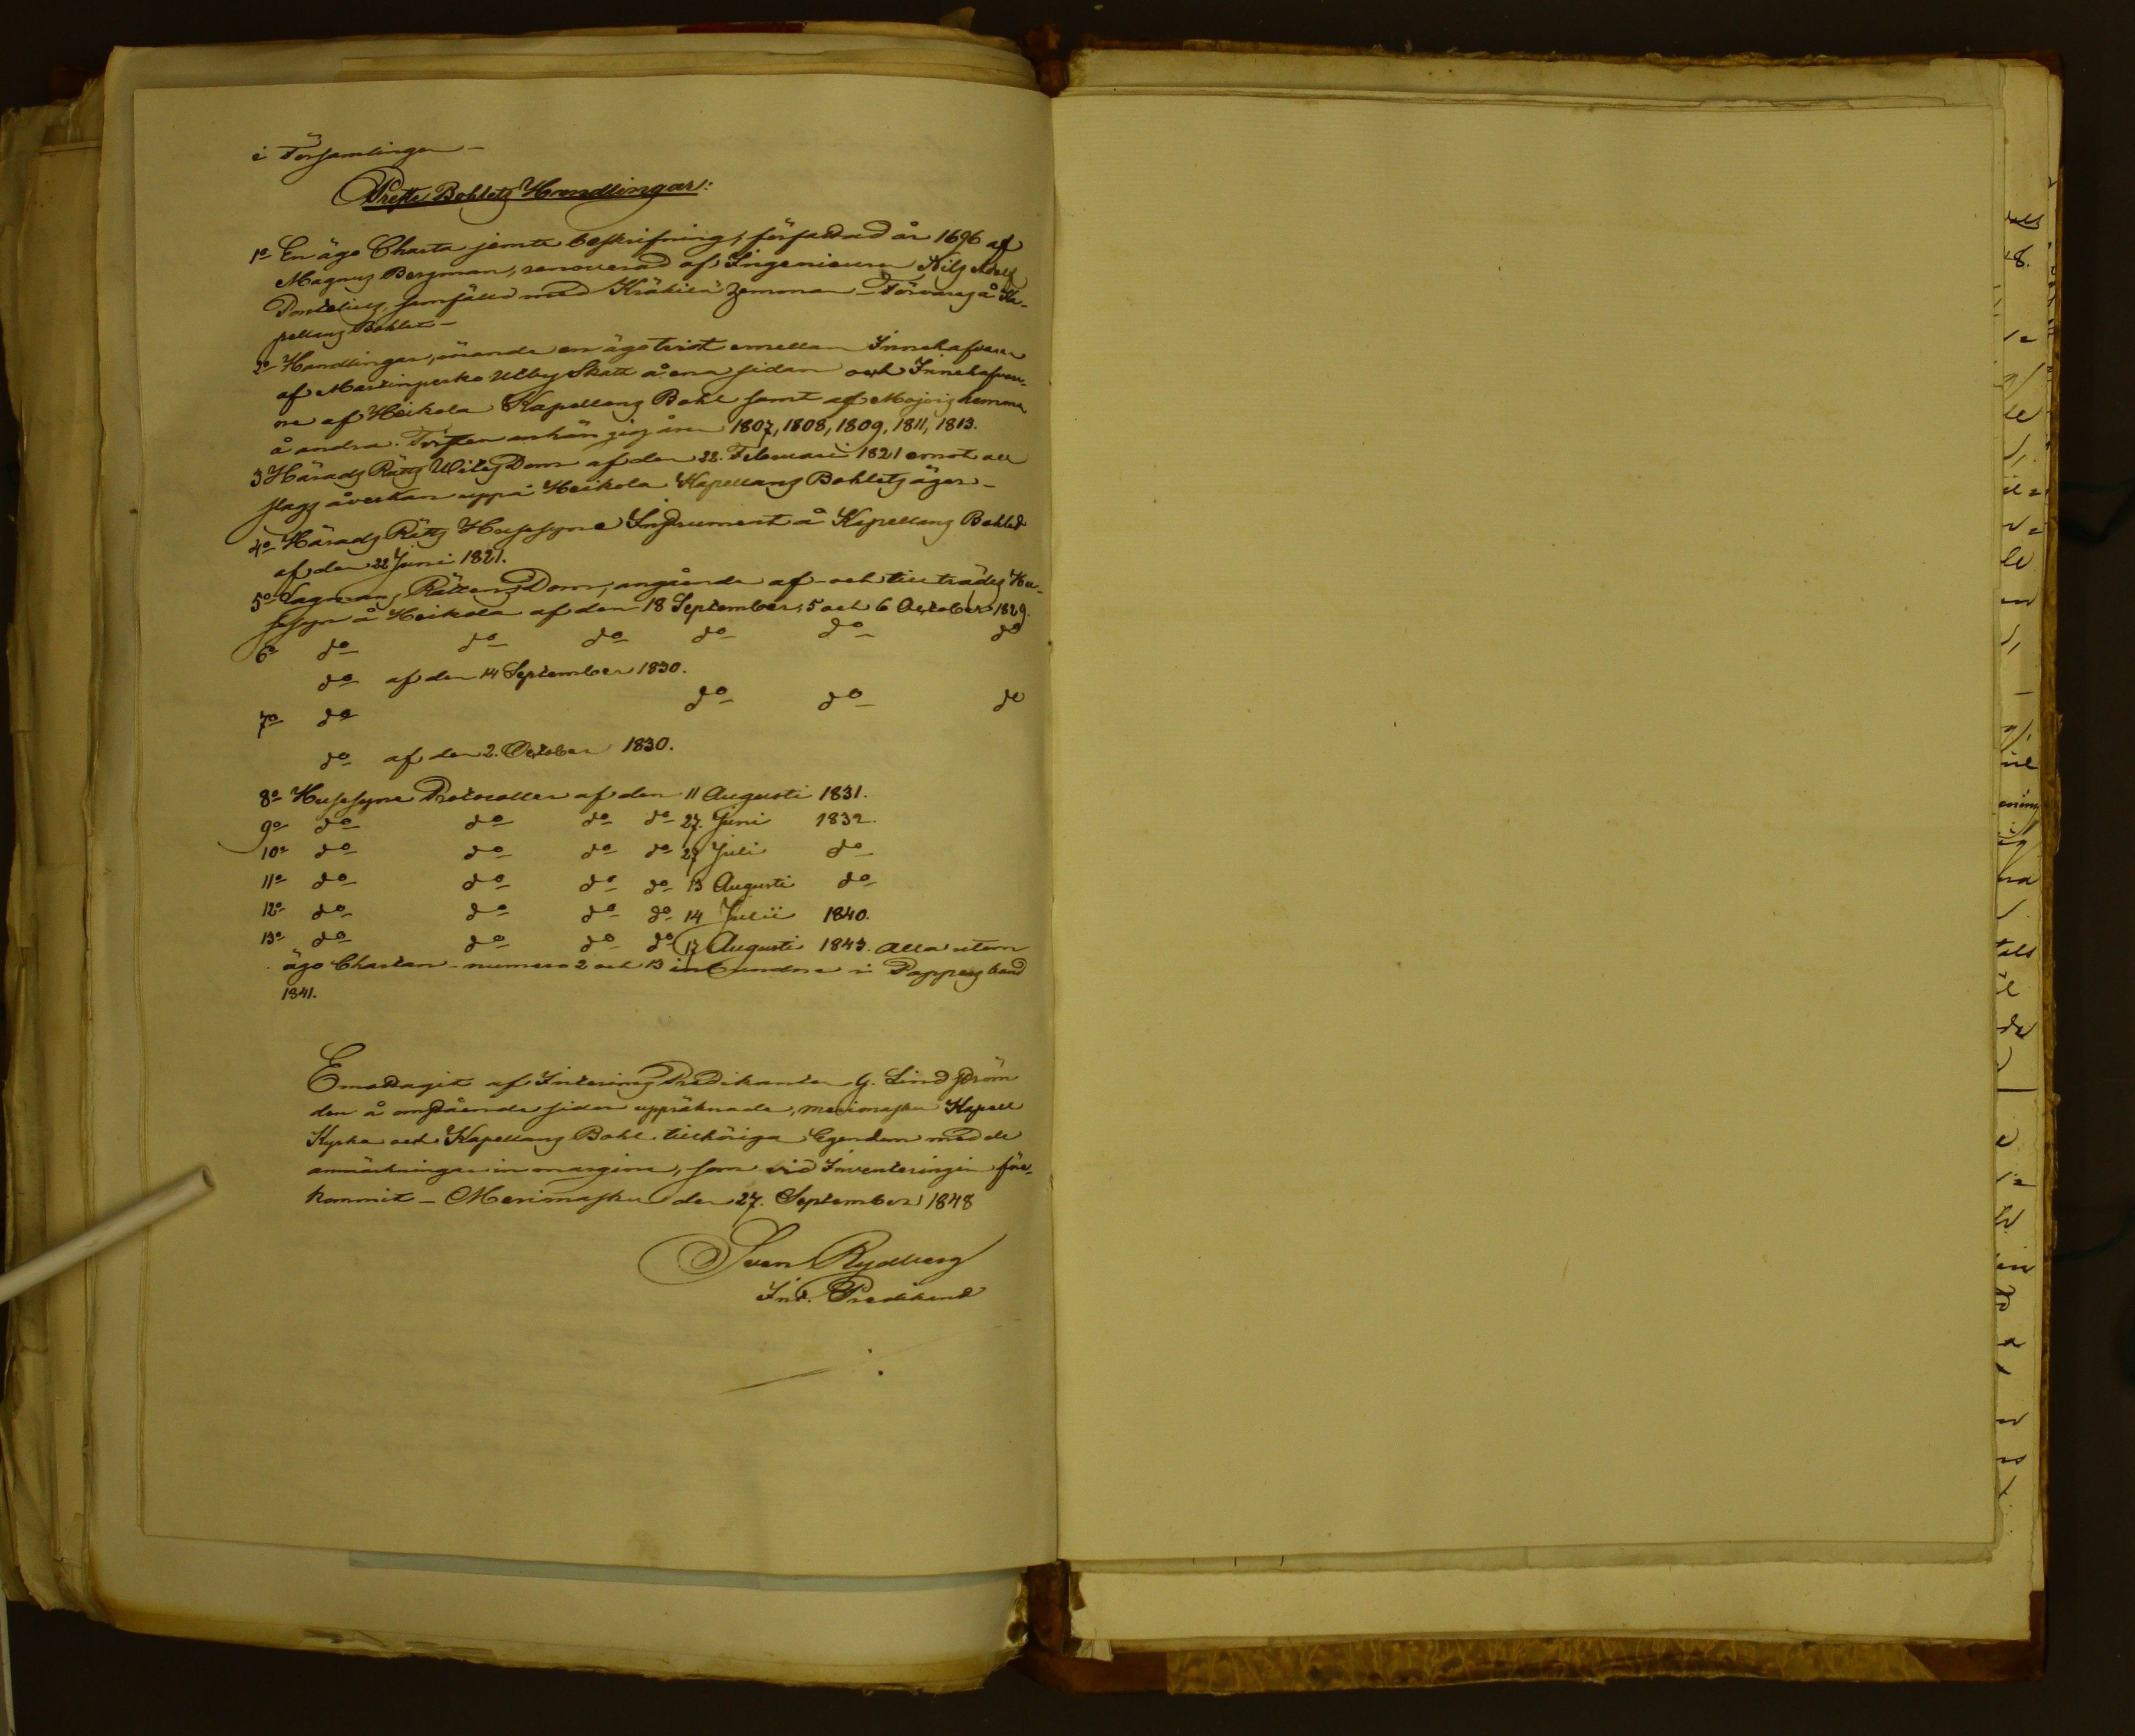 i Församlingen -
Preste Bohlets Handlingar:
1o En ägo Charta jemte beskrifning, författad år 1696 af
Magnus Bergman, renoverad af Ingenieuren Nils Adolf
samfäld med hemman - Förvaras å Ka-
pellans Bohlet -
2o Handlingar, rörande en ägotvist emellan Innehafvaren
af Martinperko Utby Skatt å ena sidan och Innehafvar-
ne af Heikola Kapellans Bohl samt af Mojois hemman
å andra. Tvisten anhängig åren 1807, 1808, 1809, 1811, 1813.
3 Härads Rätts Wites Dom af den 22. Februari 1821 emot all
slags åverkan uppå Heikola Kapellans Bohlets ägor -
4o Härads Rätts Husesyns Instrument å Kapellans Bohlet
af den 22 Juni 1821.
5o Lagmans Rättens Dom, angående af- och tillträdes Hu-
sesyn å Heikola af den 18 September, 5 och 6 October 1829.
6o do do do do do do
do af den 14 September 1830.
7o do do do do
do af den 2. October 1830.
8o Husesyns Protocoller af den 11 Augusti 1831.
9o do do do do 27. Juni 1832.
10o do do do do 27 Juli do
11o do do do do 13 Augusti do
12o do do do do 14 Julii 1840.
13o do do do do 17 Augusti 1843. Alla utom
ägo Chartan - numero 2 och 13 inbundne i Pappers band
1841.
Emottagit af Interims Predikanten G. Lindström
den å omstående sidor uppräknade, Merimasku Kapell
Kyrka och Kapellans Bohl tillhöriga Egendom med de
anmärkningar in margine, som vid Inventeringen före-
kommit - Merimasku den 27. September 1848
Sven Rydberg
Int. Predikant